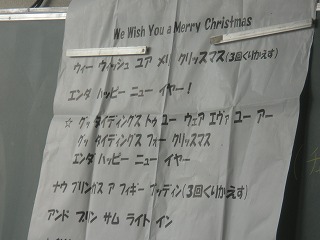 We Wish You a Merry Christmas
ウィー ウィッシュ ユア メリ クリッスマス(3回くりかえす)
エンダ ハッピー ニュー イヤー!
☆ グッ タイディングス トゥ ユー ウェア エヴァ ユー アー
グッ タイディングス フォー クリッスマス
エンダ ハッピー ニュー イヤー
ナウ ブリングス ア フィギー プッディン(3回くりかえす)
アンド ブリン サム ライト イン